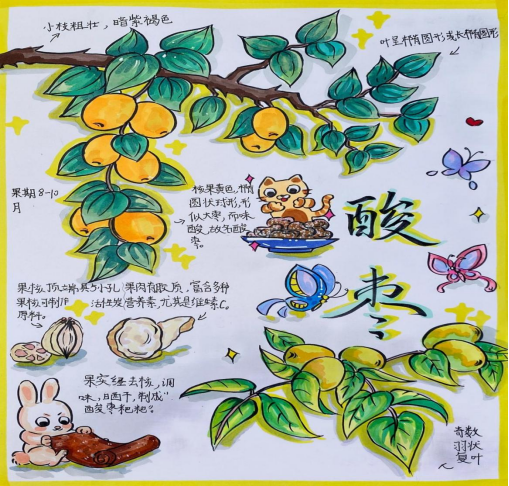 小枝粗壮，暗紫褐色
叶呈椭圆形或长椭圆形
果期8-10
月
核果黄色，椭
圆状球形，形
似大枣，而味
酸，故名酸
枣。
酸
枣
果核顶端具5小孔
果核可制作
原料。
果肉有胶质，富含多种
活性营养素，尤其是维生素C。
果实经去核，调
味，日晒干，制成“
酸枣粑粑”
奇数
羽状
复叶